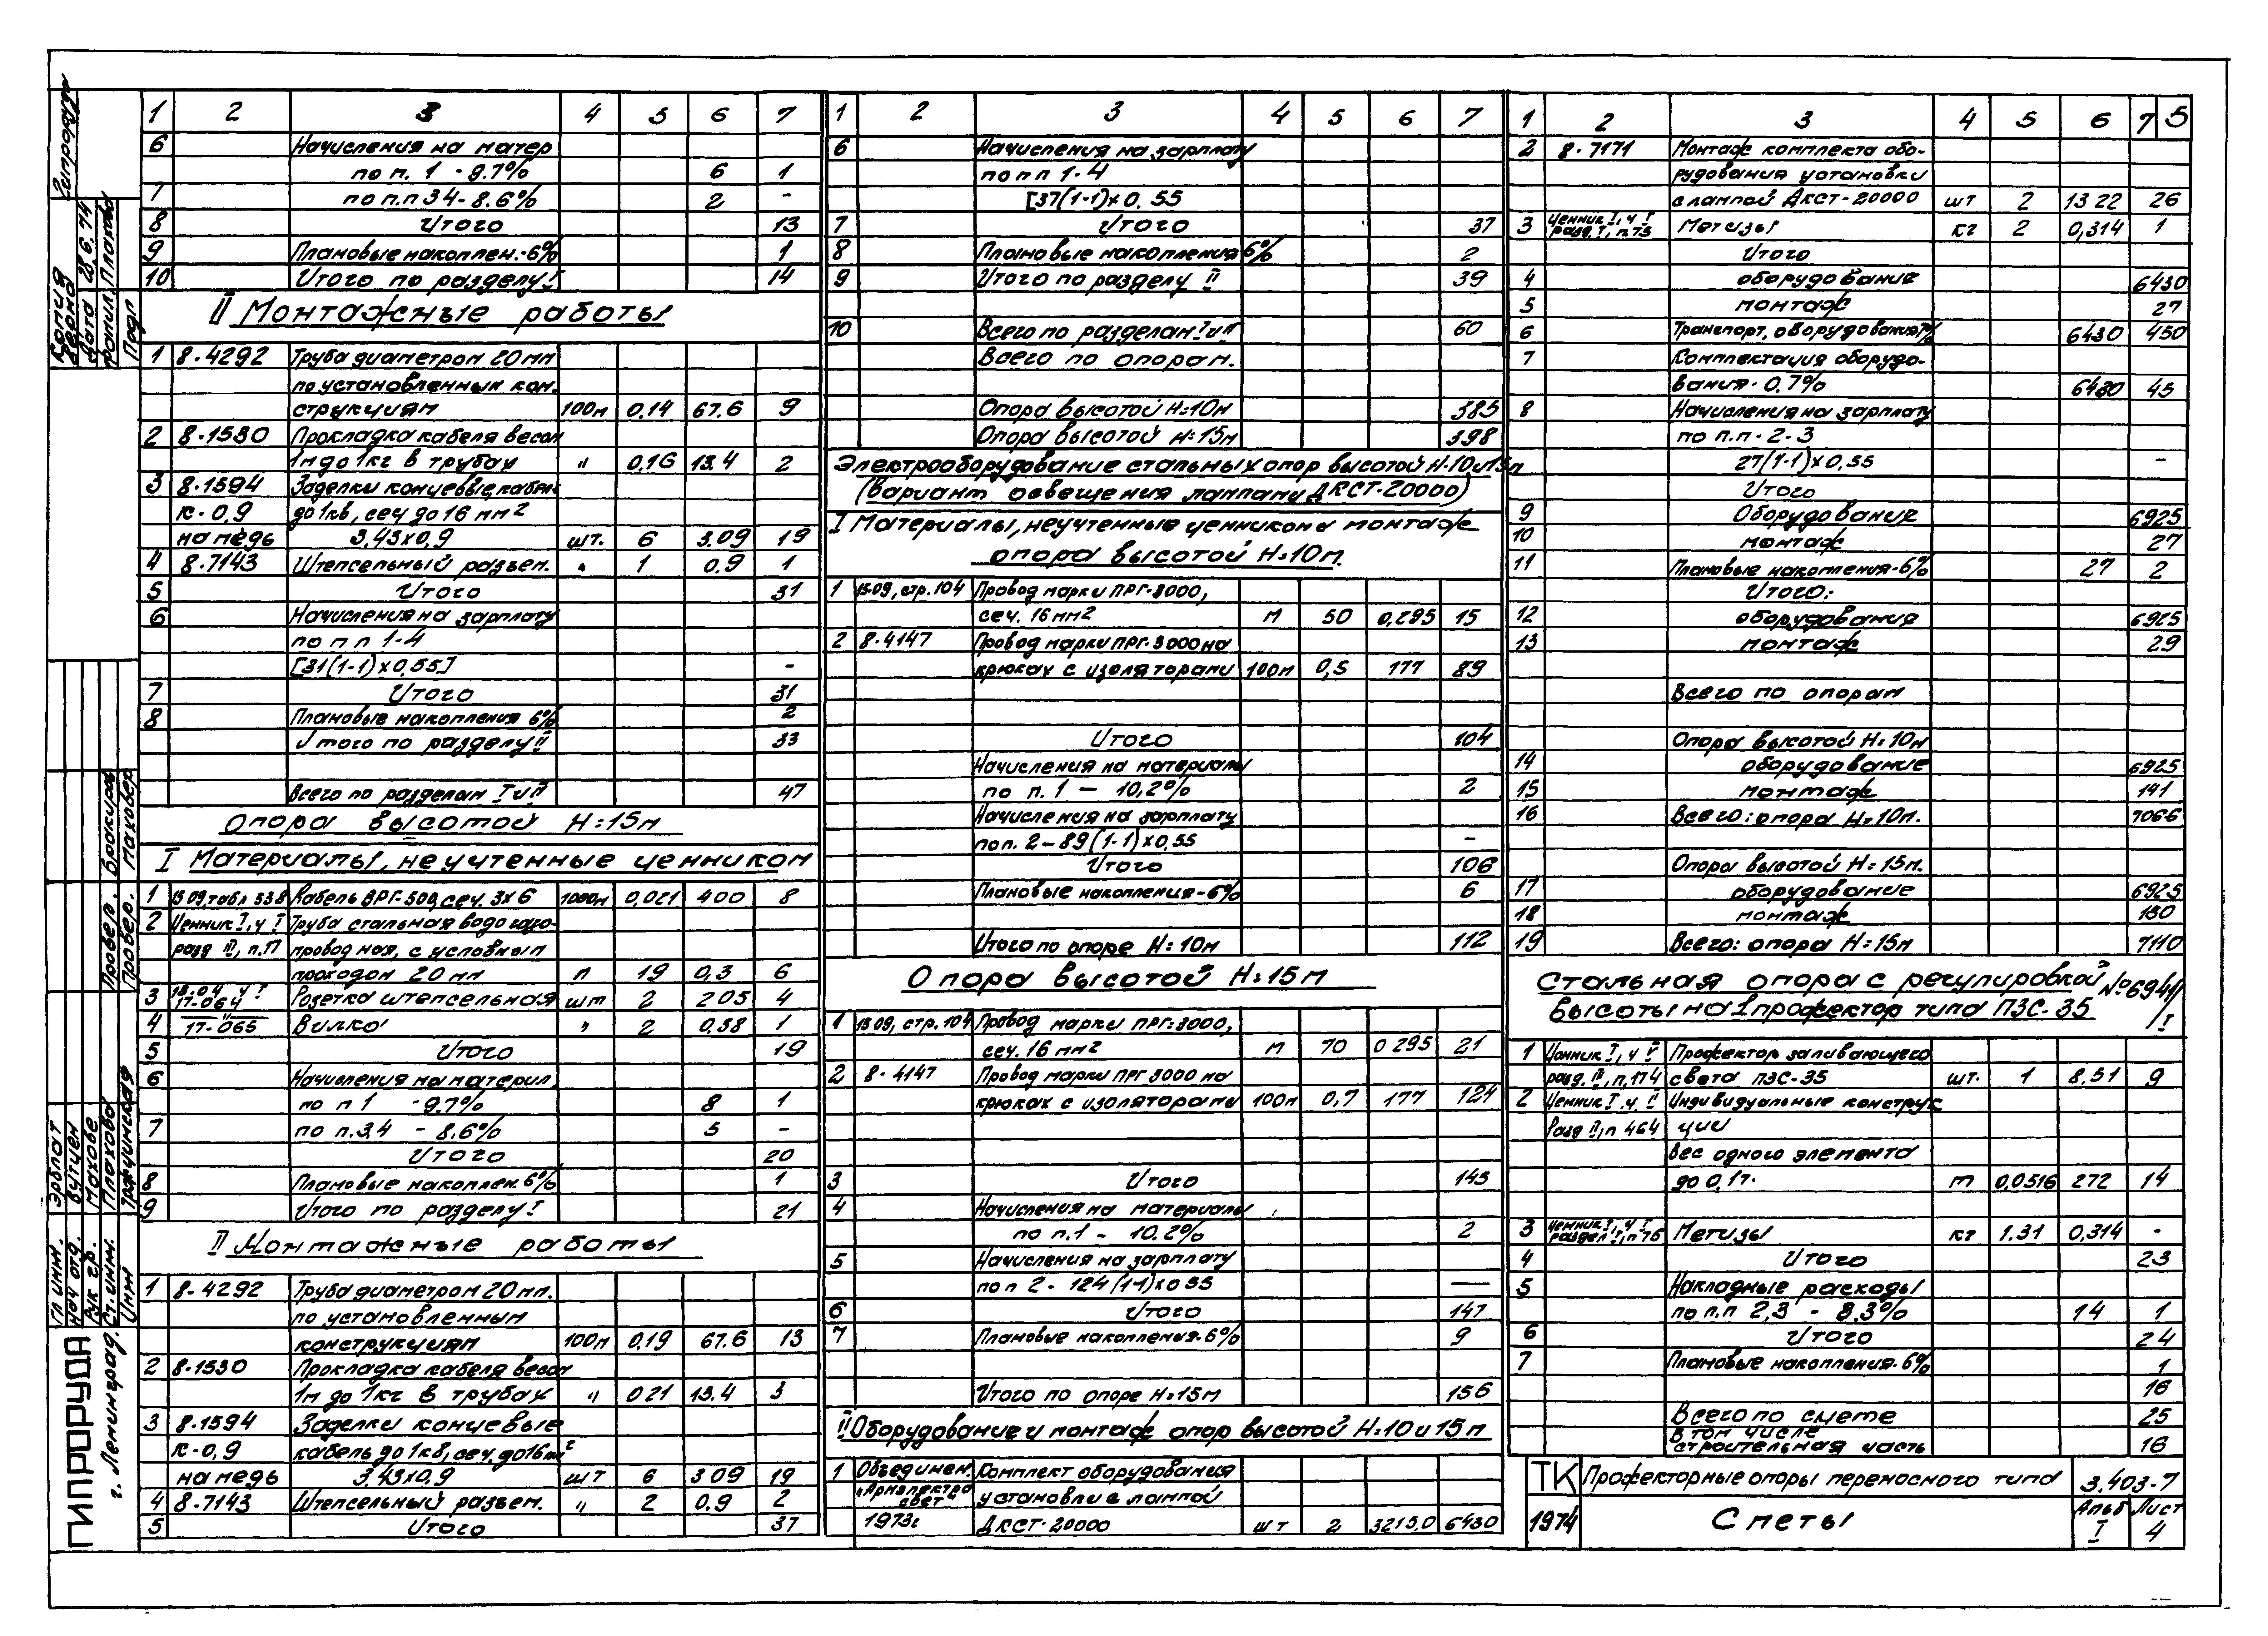 1 2 3 4 5 6 7
6 Начисления на матер
по п. 1 - 9.7% 6 1
7 по п.п 3 4 - 8.6% 2 -
8 Итого 13
9 Плановые накоплен.-6% 1
10 Итого по разделу I 14
II Монтажные работы
1 8-4292 Труба диаметром 20 мм
по установленным кон.
струкциям 100м 0,14 67.6 9
2 8-1530 Прокладка кабеля весом
1м до 1кг в трубах " 0,16 13.4 2
3 8-1594 Заделки концевые, кабель
к-0,9 до 1кв, сеч до 16 мм2
на медь 3,43х0,9 шт. 6 3.09 19
4 8-7143 Штепсельный разъем. " 1 0.9 1
5 Итого 31
6 Начисления на зарплату
по п п 1-4
[31(1-1)х0,55] -
7 Итого 31
8 Плановые накопления 6% 2
Итого по разделу II 33
Всего по разделам I и II 47
Опора высотой Н=15м
I Материалы, неучтенные ценником
1 15 09, табл 53 8 Кабель ВРГ-500, сеч. 3х6 1000м 0,021 400 8
2 Ценник I, ч I Труба стальная водогазо-
разд III, п.17 проводная, с условным
проходом 20 мм м 19 0,3 6
3 15-04 ч I 17-064 Розетка штепсельная шт 2 2 05 4
4 17-065 Вилка " 2 0,38 1
5 Итого 19
6 Начисления на материл.
по п 1 - 9.7% 8 1
7 по п.3,4 - 8.6% 5 -
Итого 20
8 Плановые накоплен. 6% 1
9 Итого по разделу I 21
II Монтажные работы
1 8-4292 Труба диаметром 20 мм.
по установленным
конструкциям 100м 0,19 67.6 13
2 8-1530 Прокладка кабеля весом
1м до 1кг в трубах " 0 21 13.4 3
3 8-1594 Заделки концевые
к-0,9 кабель до 1кв, сеч. до 16мм2
на медь 3,43х0,9 шт 6 3 09 19
4 8-7143 Штепсельный разъем. " 2 0.9 2
5 Итого 37
1 2 3 4 5 6 7
6 Начисления на зарплату
по п п 1-4
[37(1-1)х 0.55
7 Итого 37
8 Плановые накопления 6% 2
9 Итого по разделу II 39
10 Всего по разделам I и II 60
Всего по опорам.
Опора высотой Н=10м 385
Опора высотой Н=15м 398
Электрооборудование стальных опор высотой Н-10 и 15м
(Вариант освещения лампами ДКСТ-20000)
I Материалы, неучтенные ценником на монтаж
опора высотой Н=10м.
1 15-09, стр. 104 Провод марки ПРГ-3000,
сеч. 16 мм2 м 50 0,295 15
2 8-4147 Провод марки ПРГ-3000 на
крюках с изоляторами 100м 0,5 177 89
Итого 104
Начисления на материалы
по п. 1 — 10,2% 2
Начисления на зарплату
по п. 2 - 89(1-1)х0,55 -
Итого 106
Плановые накопления - 6% 6
Итого по опоре Н=10м 112
Опора высотой Н=15м
1 15 09, стр. 104 Провод марки ПРГ-3000,
сеч. 16 мм2 м 70 0 295 21
2 8-4147 Провод марки ПРГ 3000 на
крюках с изоляторами 100м 0,7 177 124
3 Итого 145
4 Начисления на материалы
по п.1 - 10.2% 2
5 Начисления на зарплату
по п 2 - 124 (1-1)х0 55 —
6 Итого 147
7 Плановые накопления. 6% 9
Итого по опоре Н=15м 156
II Оборудование и монтаж опор высотой Н=10 и 15м
1 Объединен. Комплект оборудования
"Армэлектро свет" установки с лампой
1973г ДКСТ-20000 шт 2 3215,0 6430
1 2 3 4 5 6 7 5
2 8-7171 Монтаж комплекта обо-
рудования установки
с лампой ДКСТ-20000 шт 2 13 22 26
3 Ценник I, ч I разд. I, п.75 Метизы кг 2 0,314 1
Итого
4 оборудование 6430
5 монтаж 27
6 Транспорт, оборудования 7% 6430 450
7 Комплектация оборудо-
вания - 0.7% 6430 45
8 Начисления на зарплату
по п.п - 2-3
27(1-1)х0,55 -
Итого
9 Оборудование 6925
10 монтаж 27
11 Плановые накопления - 6% 27 2
Итого:
12 оборудование 6925
13 монтаж 29
Всего по опорам
Опора высотой Н=10м
14 оборудование 6925
15 монтаж 141
16 Всего: опора Н=10м. 7066
Опора высотой Н=15м.
17 оборудование 6925
18 монтаж 180
19 Всего: опора Н=15м 7110
Стальная опора с регулировкой
высоты на 1 прожектор типа ПЗС-35
№6941/I
1 Ценник I, ч V Прожектор заливающего
разд. III, п.174 света ПЗС-35 шт. 1 8,51 9
2 Ценник I. ч. II Индивидуальные конструк
Разд II, п 464 ции
Вес одного элемента
до 0,1т. т 0,0516 272 14
3 Ценник I, ч I раздел I, п 75 Метизы кг 1.31 0,314 -
4 Итого 23
5 Накладные расходы
по п.п 2,3 - 8.3% 14 1
6 Итого 24
7 Плановые накопления. 6% 1
16
Всего по смете 25
В том числе
строительная часть 16
ТК Прожекторные опоры переносного типа 3.403-7
1974 Сметы Альб I Лист 4
Гипроруда
Копия верна
Дата 28.6.74
Плахова
Подп
Провер. Бройкиров
Провер. Маховер
Гл инж. Эрблат
Нач отд. Вутцен
Рук гр. Махове
Ст. инж. Плахова
Инж
ГИПРОРУДА
г. Ленинград.